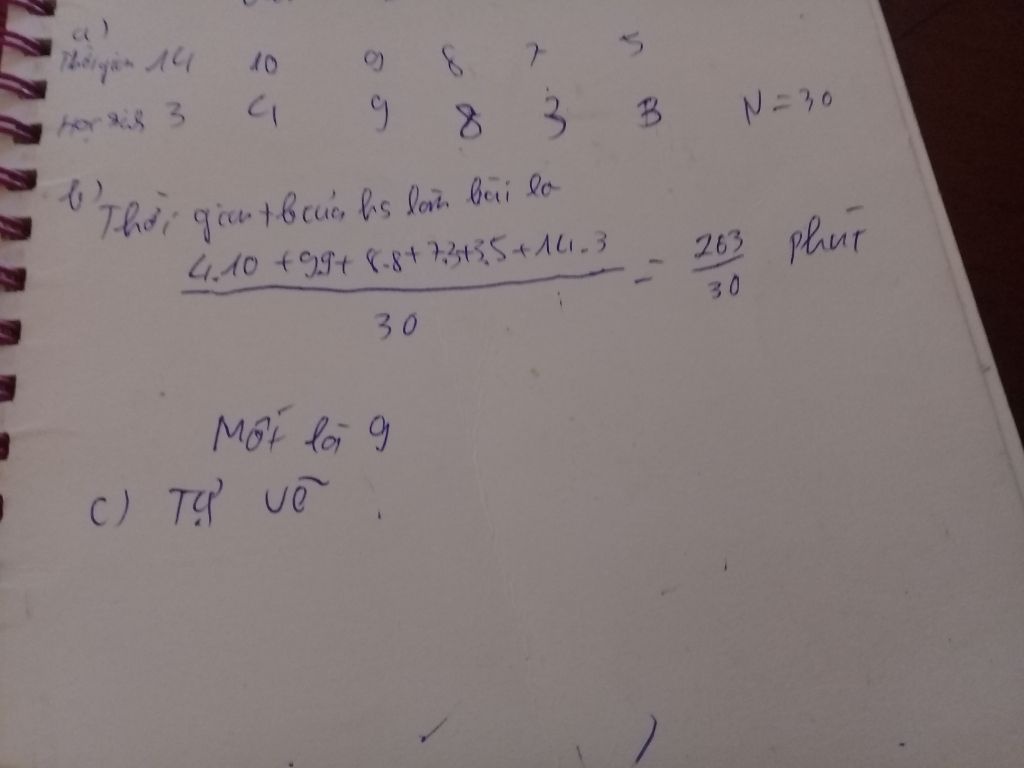 a)
Thời gian 14 10 9 8 7 5
Học sinh 3 4 9 8 3 3 N = 30
b) Thời gian tb của hs làm bài là
4.10 + 9.9 + 8.8 + 7.3 + 3.5 + 14.3 / 30 = 263 / 30 phút
Mốt là 9
c) Tự vẽ.